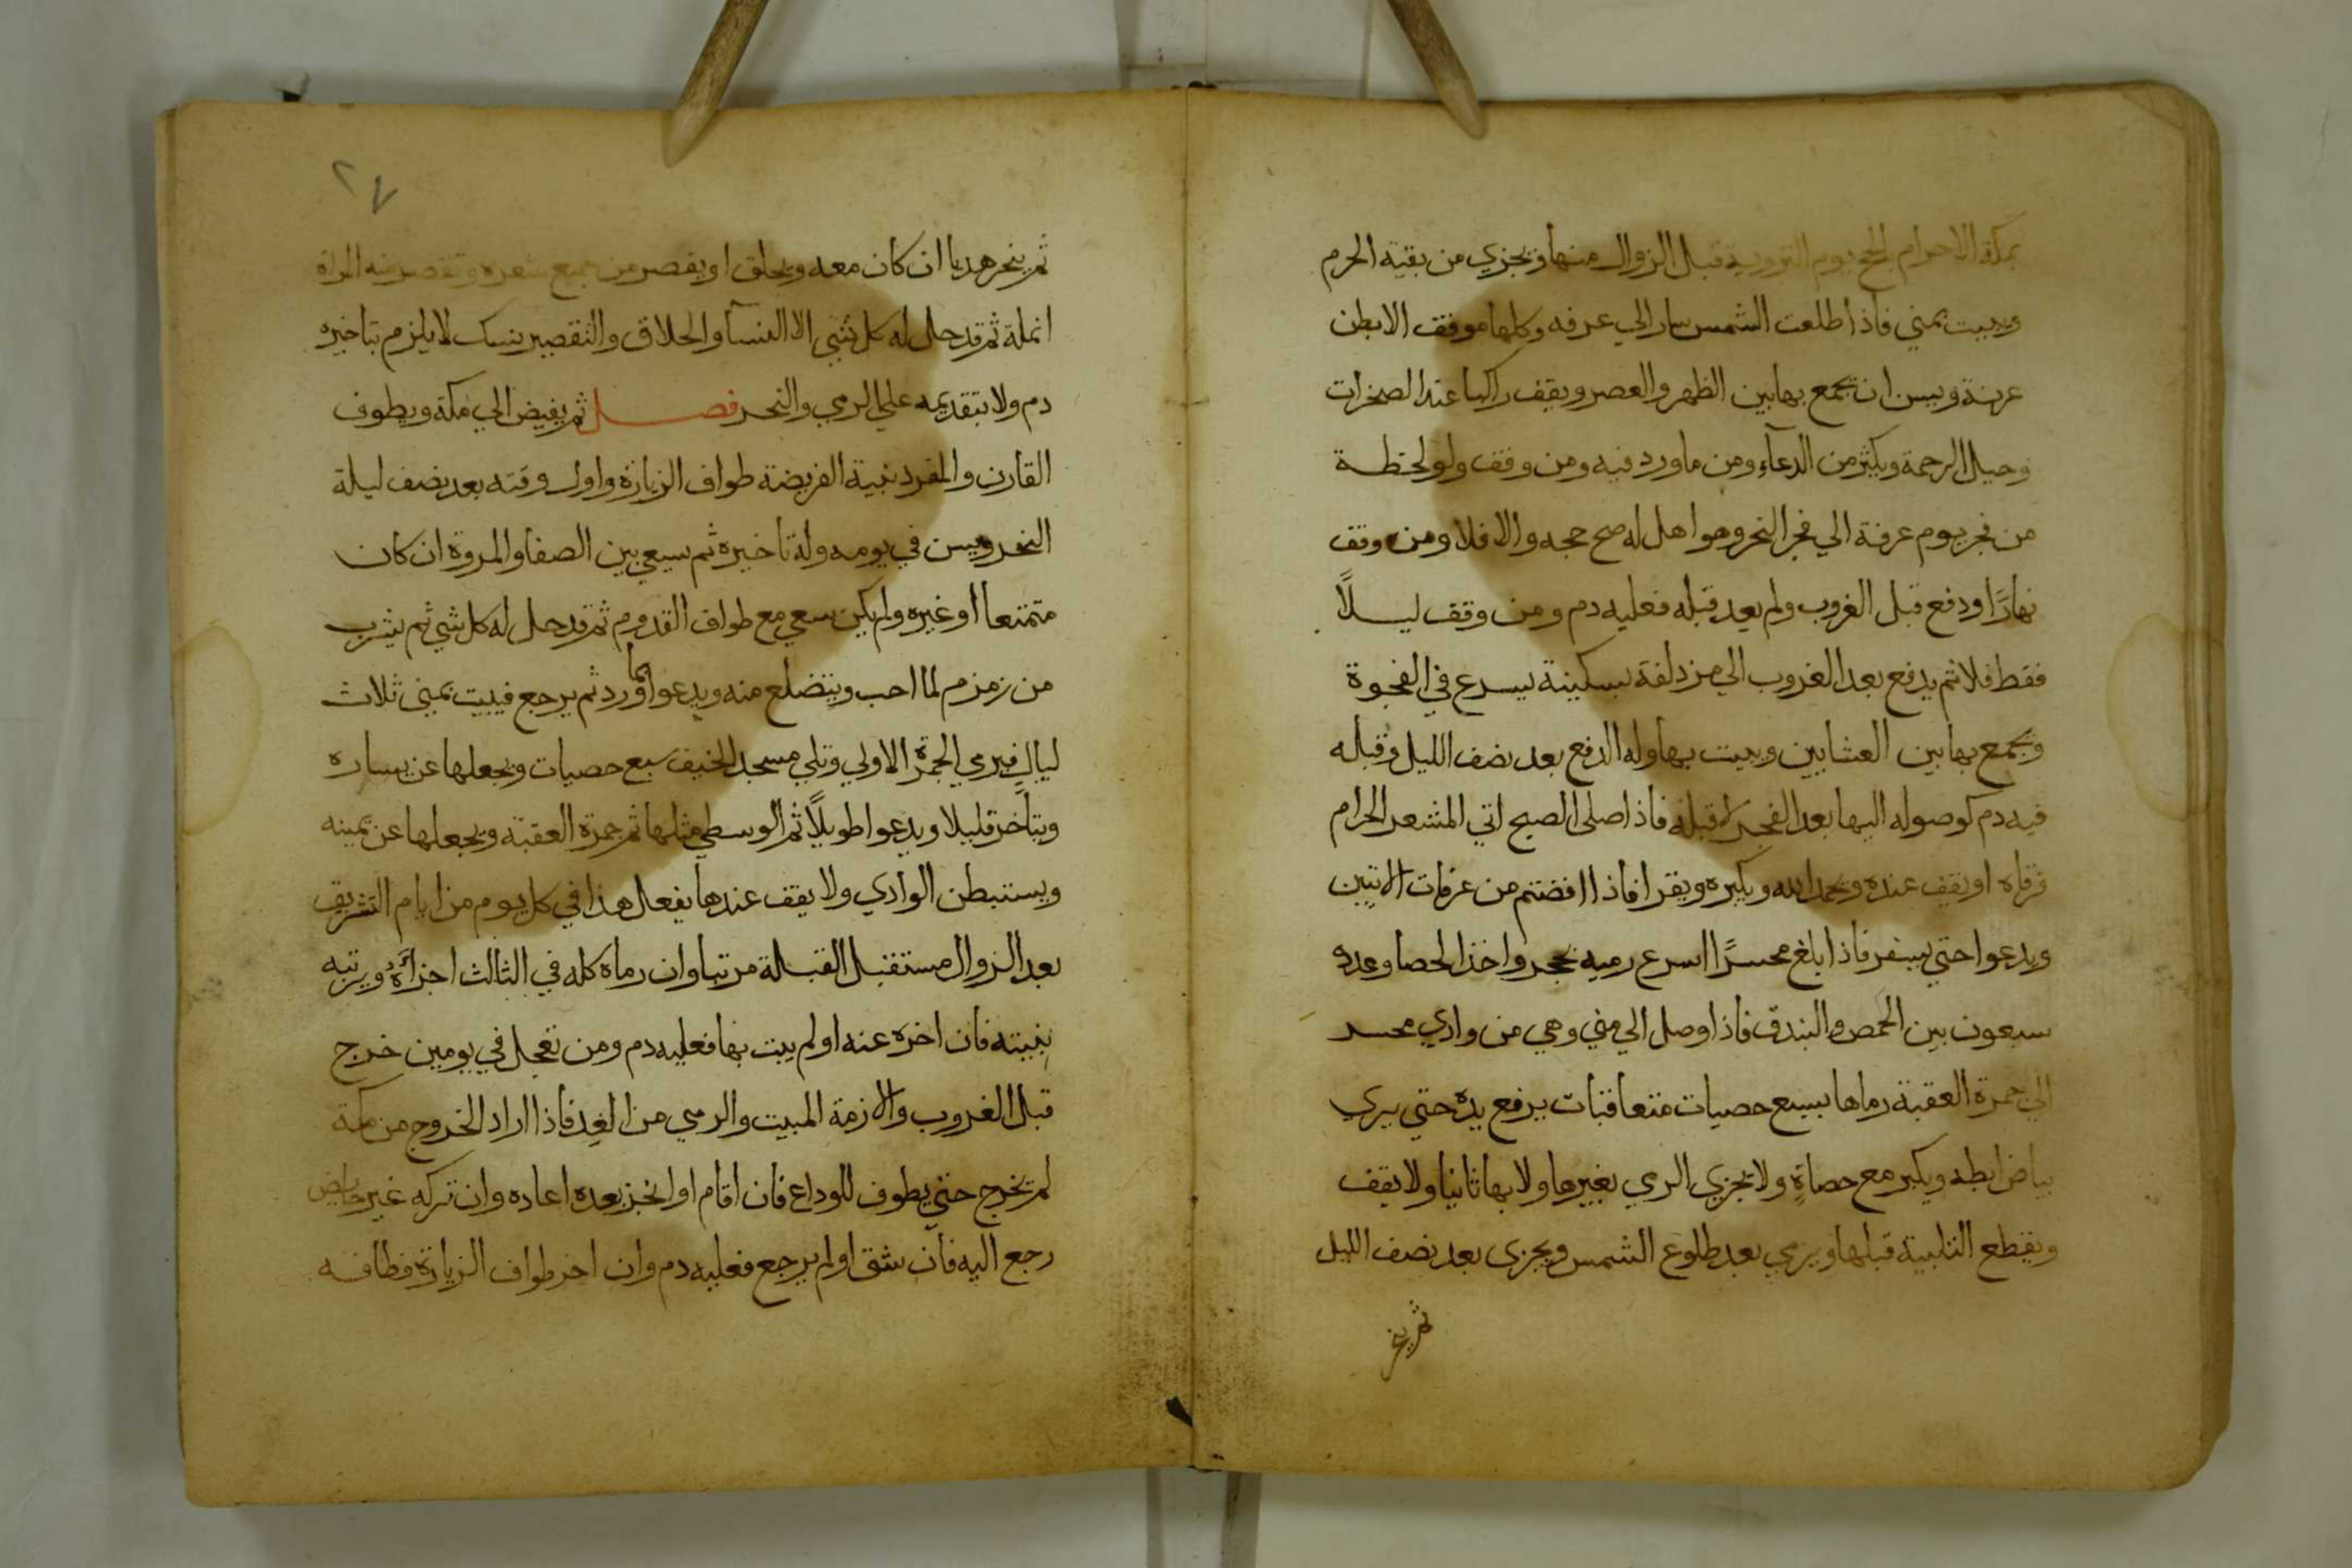 بمكة الاحرام بالحج يوم التروية قبل الزوال منها ويجزي من بقية الحرم
ويبيت بمني فاذا طلعت الشمس سار الي عرفه وكلها موقف الا بطن
عرنة ويسن ان يجمع بها بين الظهر والعصر ويقف راكبا عند الصخرات
وجبل الرحمة ويكثر من الدعآء ومن ما ورد فيه ومن وقف ولو لحظة
من فجر يوم عرفة الي فجر النحر وهو اهل له صح حجه والا فلا ومن وقف
نهارًا ودفع قبل الغروب ولم يعد قبله فعليه دم ومن وقف ليلًا
فقط فلا ثم يدفع بعد الغروب الي مزدلفة بسكينة يسرع في الفجوة
ويجمع بها بين العشايين ويبيت بها وله الدفع بعد نصف الليل وقبله
فيه دم كوصوله اليها بعد الفجر لا قبله فاذا صلى الصبح اتي المشعر الحرام
فرقاه او يقف عنده ويحمد الله ويكبره ويقرا فاذا افضتم من عرفات الايتين
ويدعوا حتي يسفر فاذا بلغ محسرًا اسرع رمية بحجر واخذ الحصا وعدده
سبعون بين الحمص والبندق فاذا وصل الي مني وهي من وادي محسر
الي جمرة العقبة رماها بسبع حصيات متعاقبات يرفع يده حتي يري
بياض ابطه ويكبر مع حصاةٍ ولا يجزي الرمي بغيرها ولا بها ثانيا ولا يقف
ويقطع التلبية قبلها ويرمي بعد طلوع الشمس ويجزى بعد نصف الليل
ثم ينحر
٢٧
ثم ينحر هديا ان كان معه ويحلق او يقصر من جميع شعره وتقصر منه المراة
انملة ثم قد حل له كل شي الا النسآ والحلاق والتقصير نسك لا يلزم بتاخيره
دم ولا بتقديمه علي الرمي والنحر فصل ثم يفيض الي مكة ويطوف
القارن والمفرد بنية الفريضة طواف الزيارة واول وقته بعد نصف ليلة
النحر ويسن في يومه وله تاخيره ثم يسعي بين الصفا والمروة ان كان
متمتعا او غيره ولم يكن سعي مع طواف القدوم ثم قد حل له كل شي ثم يشرب
من زمزم لما احب ويتضلع منه ويدعوا بما ورد ثم يرجع فيبيت بمني ثلاث
ليالٍ فيرمي الجمرة الاولي وتلي مسجد الخيف سبع حصيات ويجعلها عن يساره
ويتأخر قليلا ويدعوا طويلًا ثم الوسطي مثلها ثم جمرة العقبة ويجعلها عن يمينه
ويستبطن الوادي ولا يقف عندها يفعل هذا في كل يوم من ايام التشريق
بعد الزوال مستقبل القبلة مرتبا وان رماه كله في الثالث اجزأَهُ ويرتبه
بنيته فان اخره عنه او لم يبت بها فعليه دم ومن تعجل في يومين خرج
قبل الغروب والا لزمه المبيت والرمي من الغد فاذا اراد الخروج من مكة
لم يخرج حتي يطوف للوداع فان اقام او اتجر بعده اعاده وان تركه غير حايض
رجع اليه فان شق او لم يرجع فعليه دم وان اخر طواف الزيارة فطافه